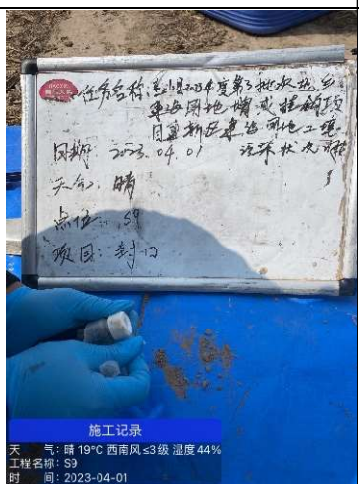 任务名称:
2023年度第3批次城乡
建设用地增减挂钩项
目
建设用地土壤
污染状况调
日期 2023.04.01
天气: 晴
点位: S9
项目: 封口
施工记录
天 气: 晴 19°C 西南风 ≤3级 湿度 44%
工程名称: S9
时 间: 2023-04-01